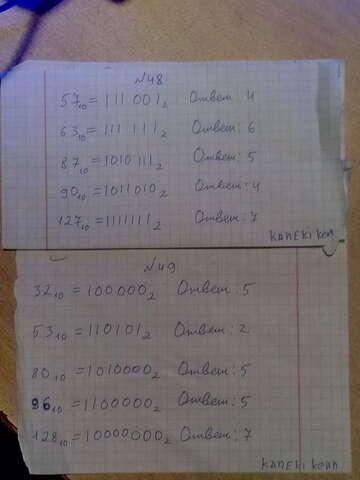 №48
57₁₀=111001₂ Ответ: 4
63₁₀=111111₂ Ответ: 6
87₁₀=1010111₂ Ответ: 5
90₁₀=1011010₂ Ответ: 4
127₁₀=1111111₂ Ответ: 7
kaneki кен
№49
32₁₀=100000₂ Ответ: 5
53₁₀=110101₂ Ответ: 2
80₁₀=1010000₂ Ответ: 5
96₁₀=1100000₂ Ответ: 5
128₁₀=10000000₂ Ответ: 7
kaneki кен